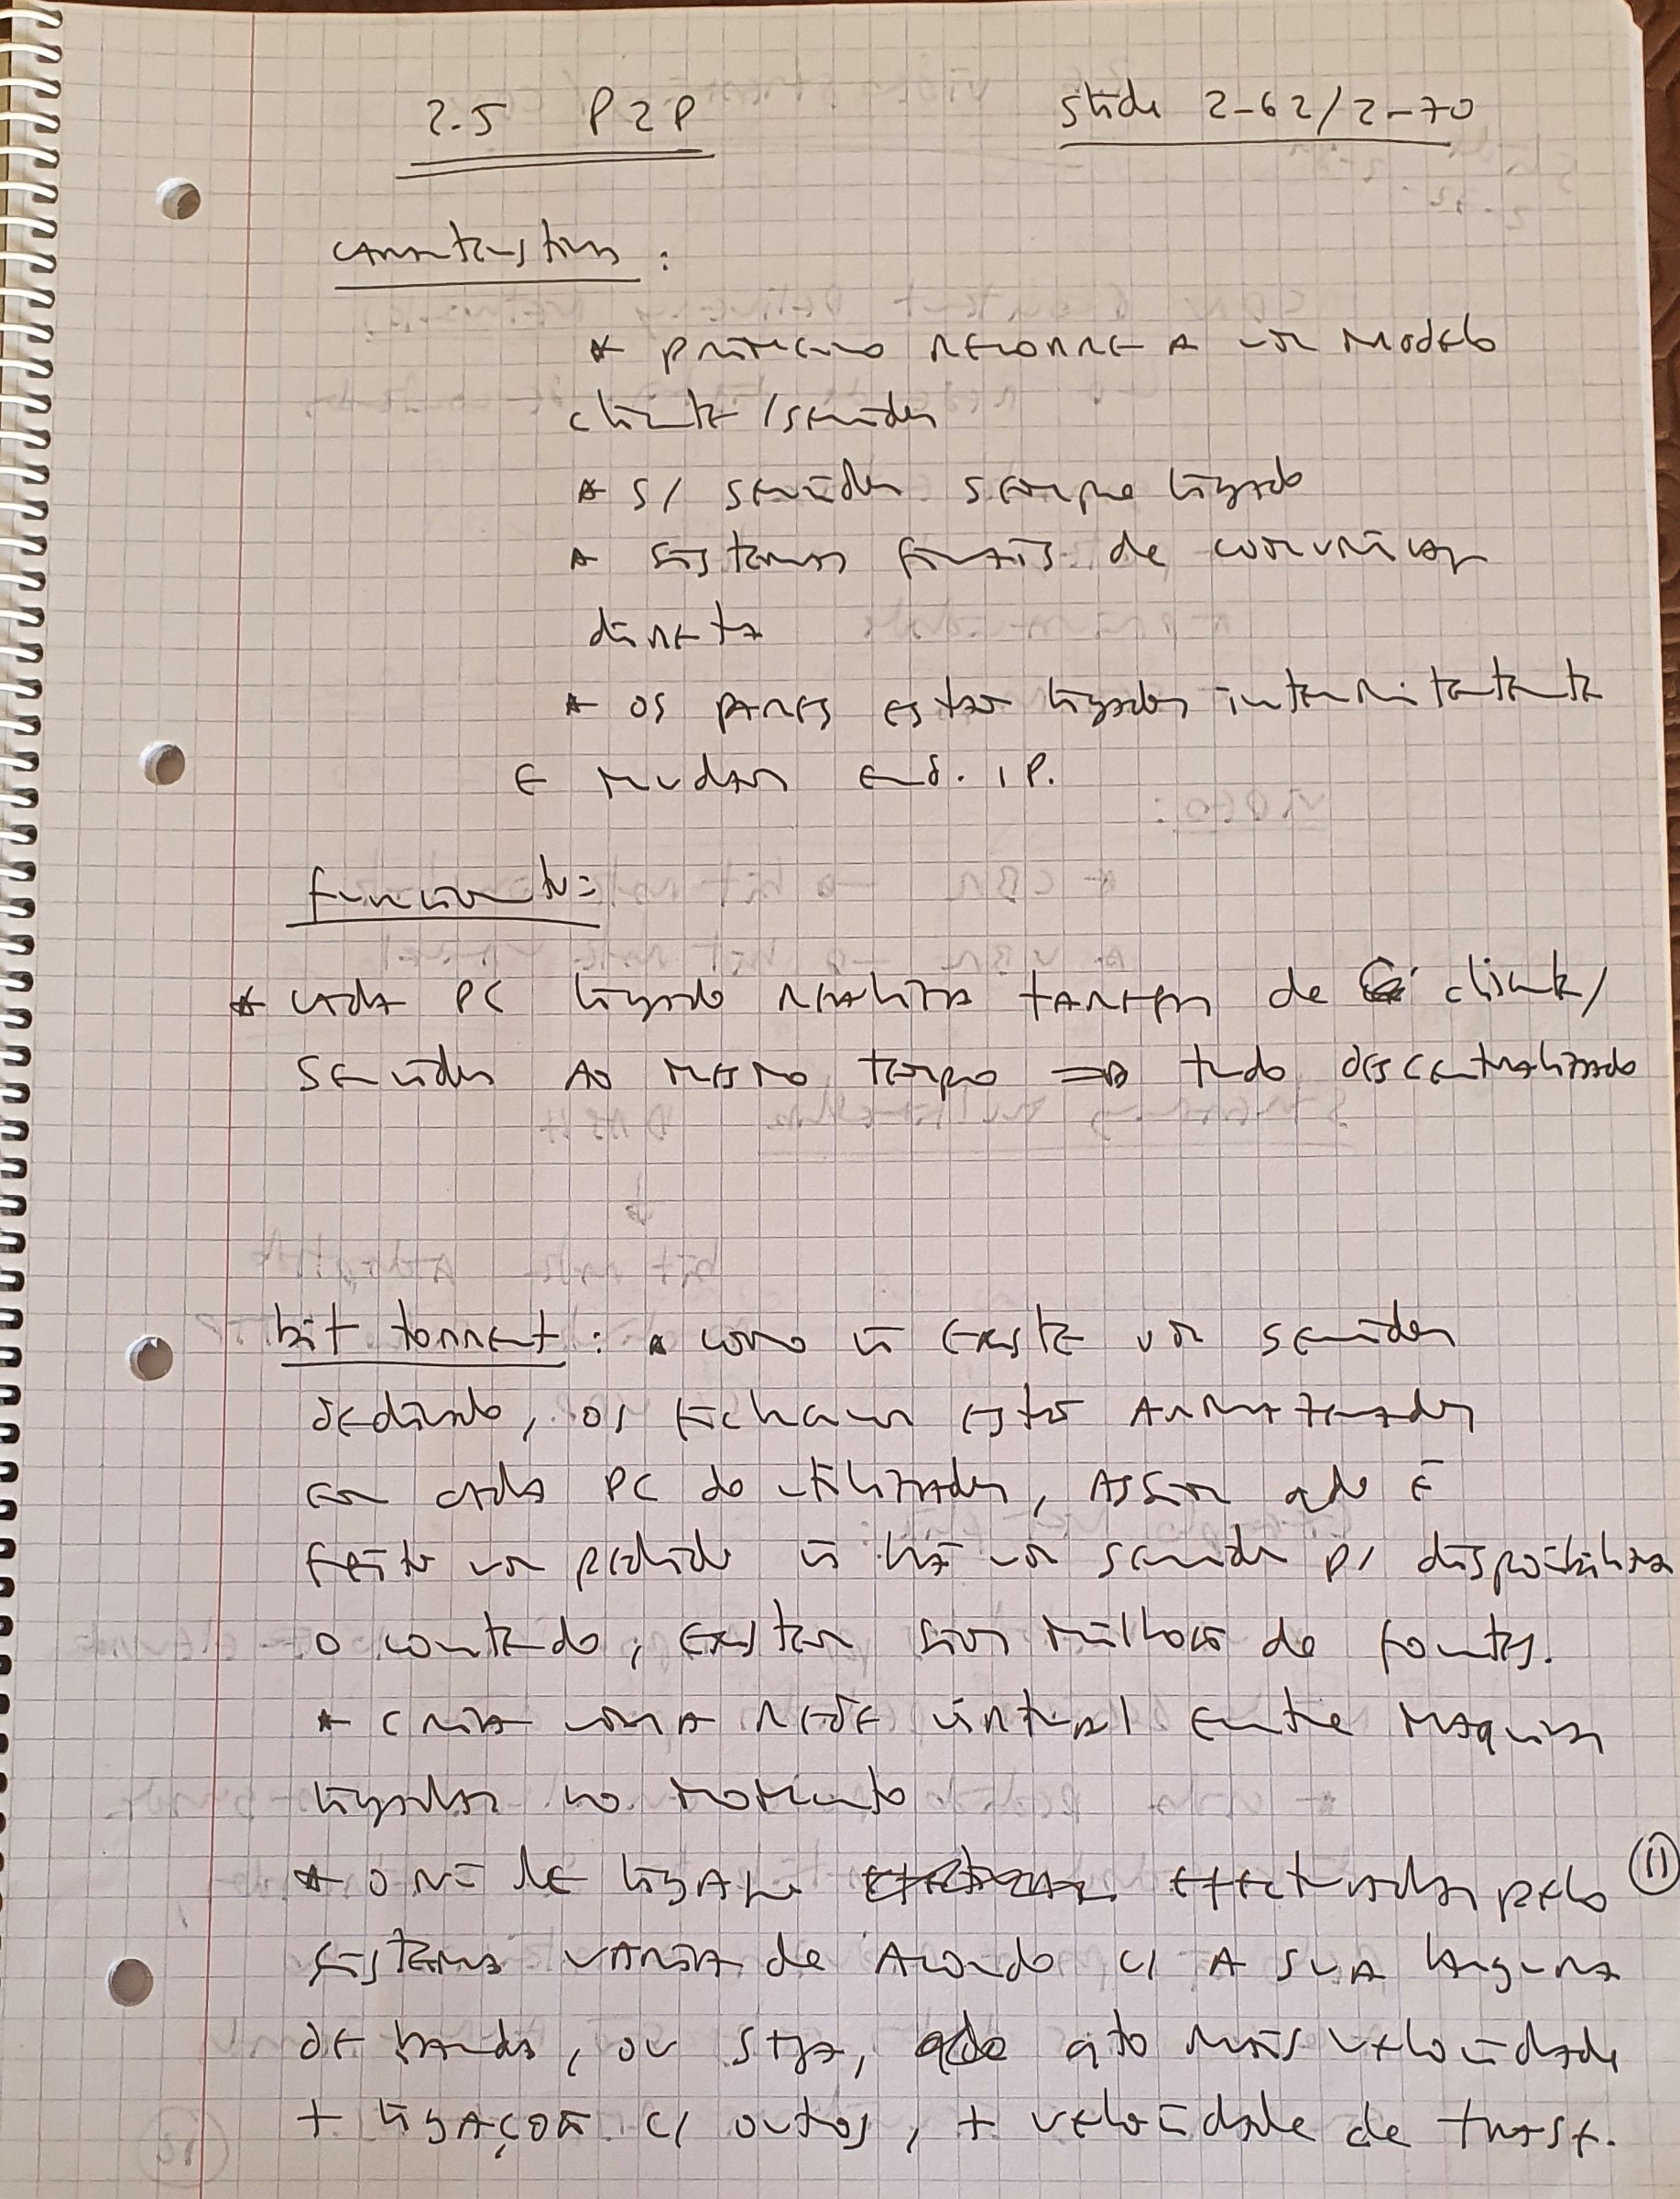 2.5 P2P slide 2-62/2-70
caracteristicas :
* primeiro recorre a um modelo
cliente/servidor
* s/ servidor sempre ligado
* sistemas finais de comunicaç
direta
* os pares estão ligados
e mudam end. IP.
funcionato:
* cada PC ligado realiza tarefas de cliente/
servidor ao mesmo tempo => tudo descentralizado
bit torrent : * como ñ existe um servidor
dedicado, os ficheiros estão armazenados
em cada PC do utilizador, assim qdo é
feito um pedido ñ há um servidor p/ disponibilizar
o conteudo, existem sim milhões de fontes.
* cria uma rede virtual entre maquinas
ligadas no momento
* o nº de ligaçõe efectuadas pelo
sistema varia de acordo c/ a sua largura
de banda, ou seja, qto mais velocidade
+ ligações c/ outros, + velocidade de transf.
11